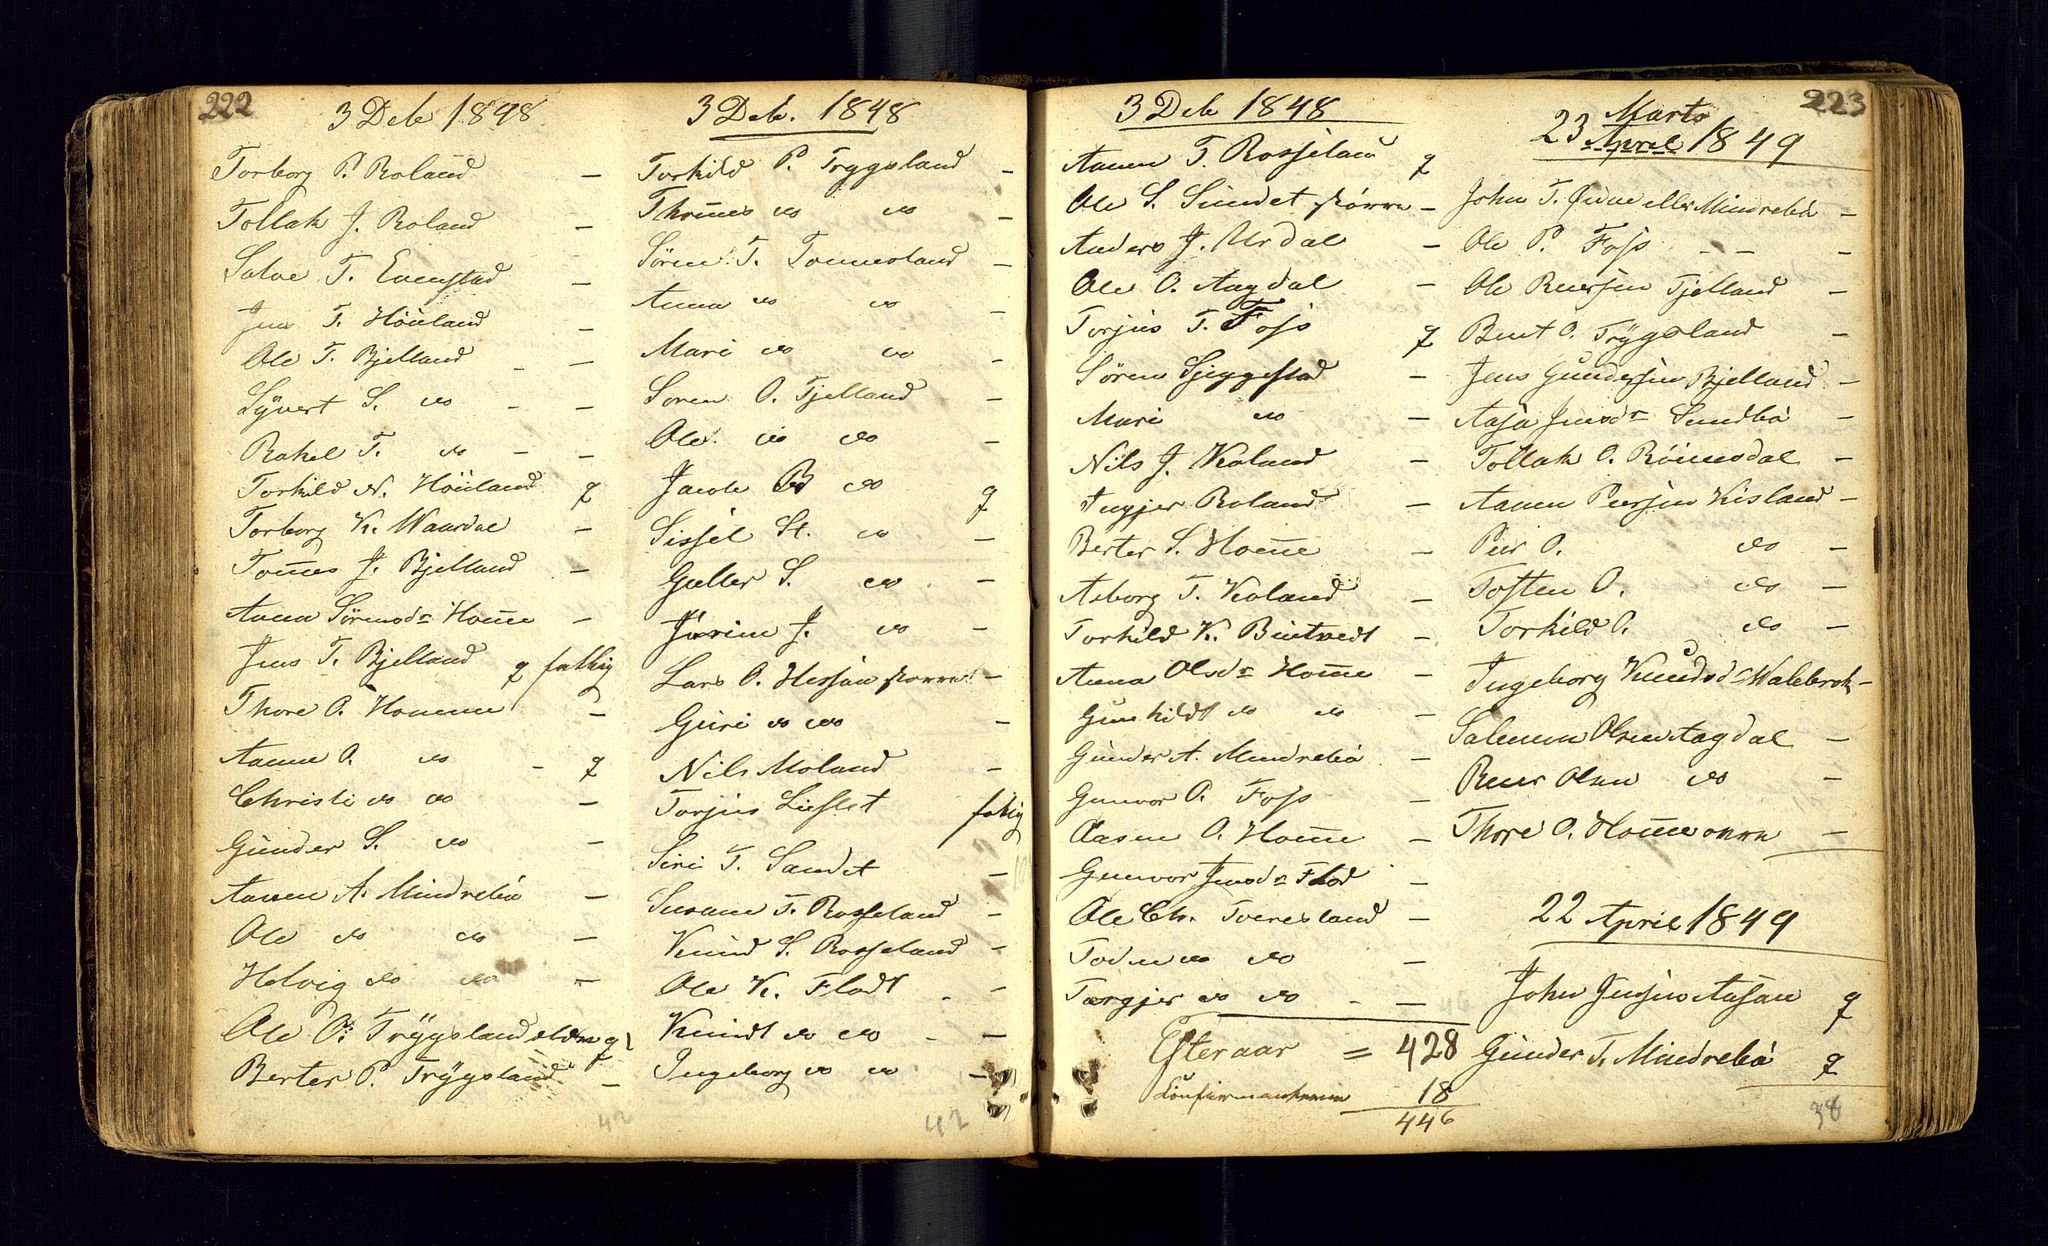 222
3 Decb 1848
Torborg P. Roland —
Tollak J. Roland —
Salve T. Evenstad —
Jens T. Höuland —
Ole T. Bjelland — —
Syvert S. do — —
Rakel T. do — —
Torkild N. Höuland g
Torborg K. Waardal —
Tomes J. Bjelland —
Anna Sörensdr Home —
Jens T. Bjelland g fattig
Thore O. Homme —
Aanen O. do — g
Christi do do —
Gunder S. do —
Aanen A. Mindrebö —
Ole do do —
Helvig do do —
Ole O. Trygsland eldre g
Berter P. Trygsland —
42
3 Decb. 1848
Torkild P. Trygsland —
Thomes do do —
Sören T. Tonnesland —
Anna do do —
Mari do do —
Sören O. Tjelland —
Ole do do —
Jacob B do g
Sissel St. do —
Gutter S. do —
Jörine J. do —
Lars O. Hessaa större —
Guri do do —
Nils Moland —
Torjus Liestet fattig
Siri T. Sandet —
Susane T. Rosseland —
Knud S. Rosseland —
Ole K. Flodt . —
Knudt do do . —
Ingeborg do do . —
42
223
3 Decb 1848
Aanen T. Rosseland g
Ole S. Sundet större —
Anders J. Urdal —
Ole O. Aagdal —
Torjus T. Foss g
Sören Sjeggestad —
Mari do —
Nils J. Roland —
Ingjer Roland —
Berter S. Home —
Asborg T. Roland —
Torkild K. Bintvedt —
Anna Olsdr Home —
Gunhildt do do —
Gunder A. Mindrebö —
Gunvor O. Foss —
Aasne O. Home —
Gunvor Jensdr Flod —
Ole Ch. Tveresland —
Todne do do —
Tærgjer do do . —
Efteraar = 428
Confirmanterne 18
446
Marts
23 April 1849
John T. Øidne eller Mindrebö —
Ole P. Foss — — —
Ole Reiersen Tjelland —
Bent O. Trygsland —
Jens Gundersen Bjelland —
Aasa Jensdr Sundbö —
Tollak O. Röinesdal —
Aanen Peersen Kisland —
Peer O. do —
Tosten O. do —
Torkild O. do —
Ingeborg Knudsd Malebrok —
Salemon Olsen Aagdal —
Reier Olsen do —
Thore O. Home —
22 April 1849
John Jensen Aasan g
Gunder T. Mindrebö g
38